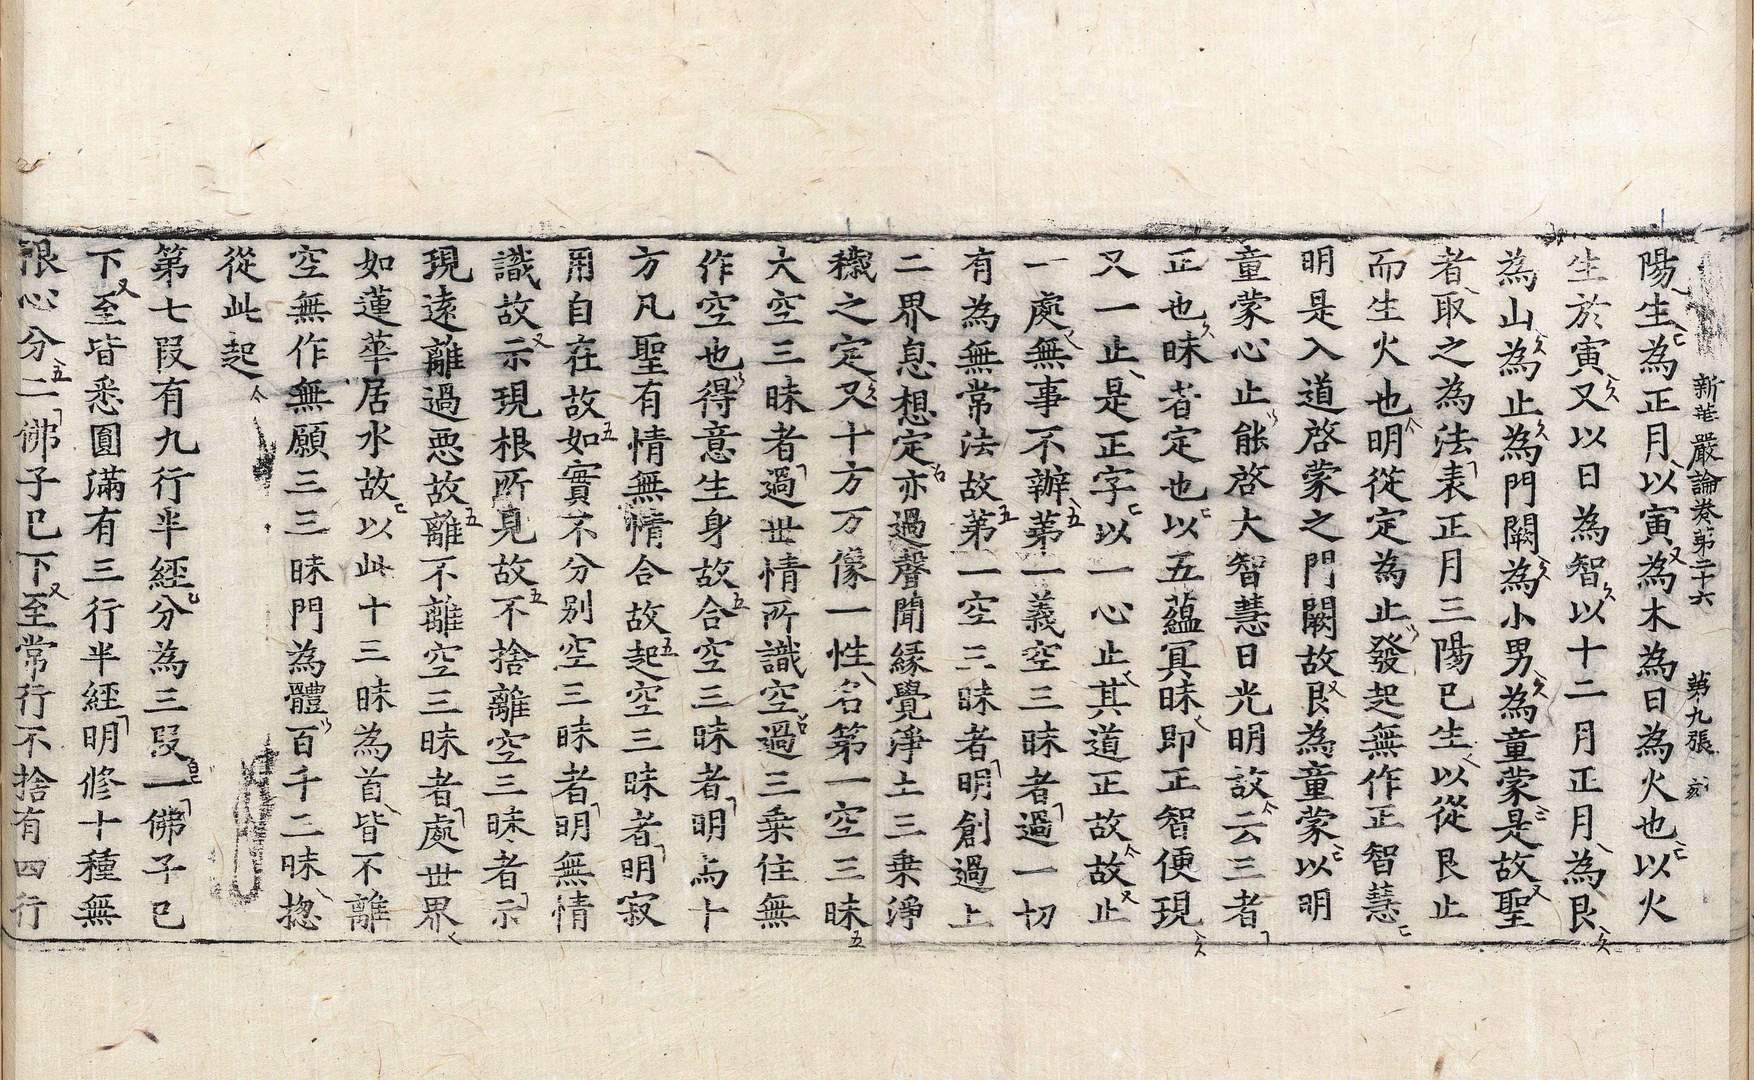 新華嚴論卷第二十六 第九張
陽生為正月以寅為木為日為火也以火
生於寅又以日為智以十二月正月為艮
為山為止為門闕為小男為童蒙是故聖
者取之為法表正月三陽已生以從艮止
而生火也明從定為止發起無作正智慧
明是入道啓蒙之門闕故艮為童蒙以明
童蒙心止能啓大智慧日光明故云三者
正也昧者定也以五蘊冥昧即正智便現
又一止是正字以一心止其道正故故止
一處無事不辦苐一義空三昧者過一切
有為無常法故苐一空三昧者明創過上
二界息想定亦過聲聞緣覺淨土三乗淨
穢之定又十方万像一性名第一空三昧
大空三昧者過世情所識空過三乗住無
作空也得意生身故合空三昧者明与十
方凡聖有情無情合故起空三昧者明寂
用自在故如實不分别空三昧者明無情
識故示現根所見故不捨離空三昧者示
現遠離過惡故離不離空三昧者處世界
如蓮華居水故以此十三昧為首皆不離
空無作無願三三昧門為體百千三昧揔
從此起
第七段有九行半經分為三段一佛子已
下至皆悉圓滿有三行半經明修十種無
限心分二佛子已下至常行不捨有四行